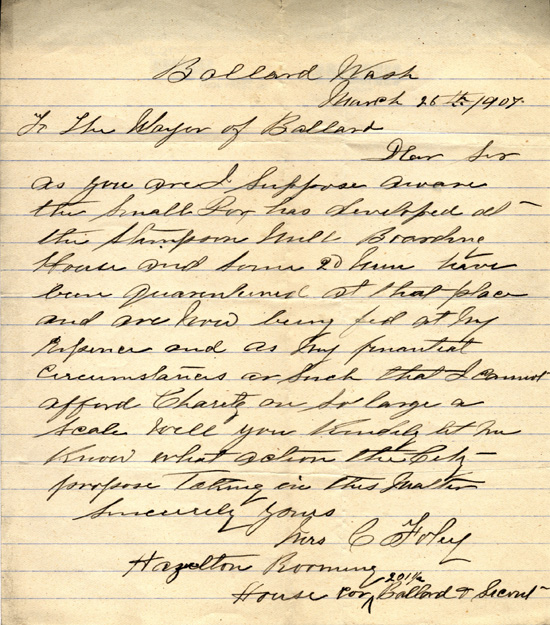 Ballard Wash
March 26th 1907.
To The Mayor of Ballard
Dear Sir
as you are I Suppose aware
the Small Pox has developed at
the Stimpson Mill Boarding
House and some 20 men have
been quarentined at that place
and are now being fed at My
Expence and as My finantial
Circumstances ar Such that I cannot
afford Charity on So large a
Scale Will you Kindly let me
Know what action the City
propose Taking in this Matter
Sincerely Yours
Mrs C Foley
Hazelton Rooming
House Cor 201½ Ballard & Second